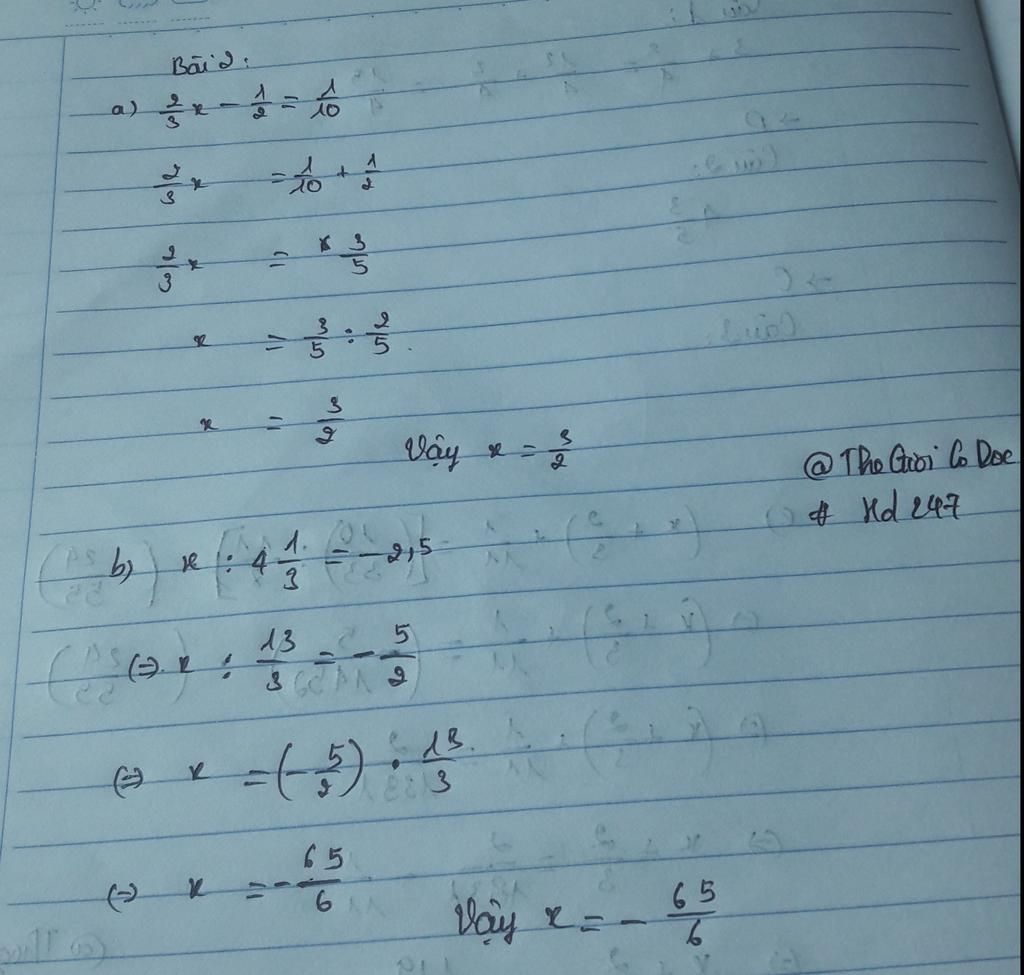 Bài 2:
a) 2/3 x - 1/2 = 1/10
2/3 x = 1/10 + 1/2
2/3 x = 3/5
x = 3/5 : 2/5.
x = 3/2
Vậy x = 3/2
@ Tho Guoi Co Doc
# Hd 247
b) x : 4 1/3 = -2,5
(=) x : 13/3 = - 5/2
(=) x = (- 5/2) . 13/3
(=) x = - 65/6
Vậy x = - 65/6